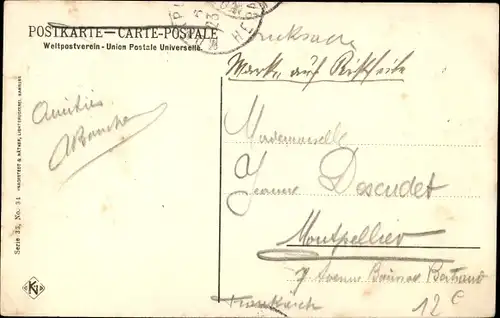 POSTKARTE—CARTE-POSTALE
Weltpostverein - Union Postale Universelle.
Drucksache
Marke auf Rückseite
Amitiés
Mademoiselle
Jeanne Descudet
Montpellier
7 Avenue Bertrand
Frankreich
12 c
Serie 33, No. 31
KN